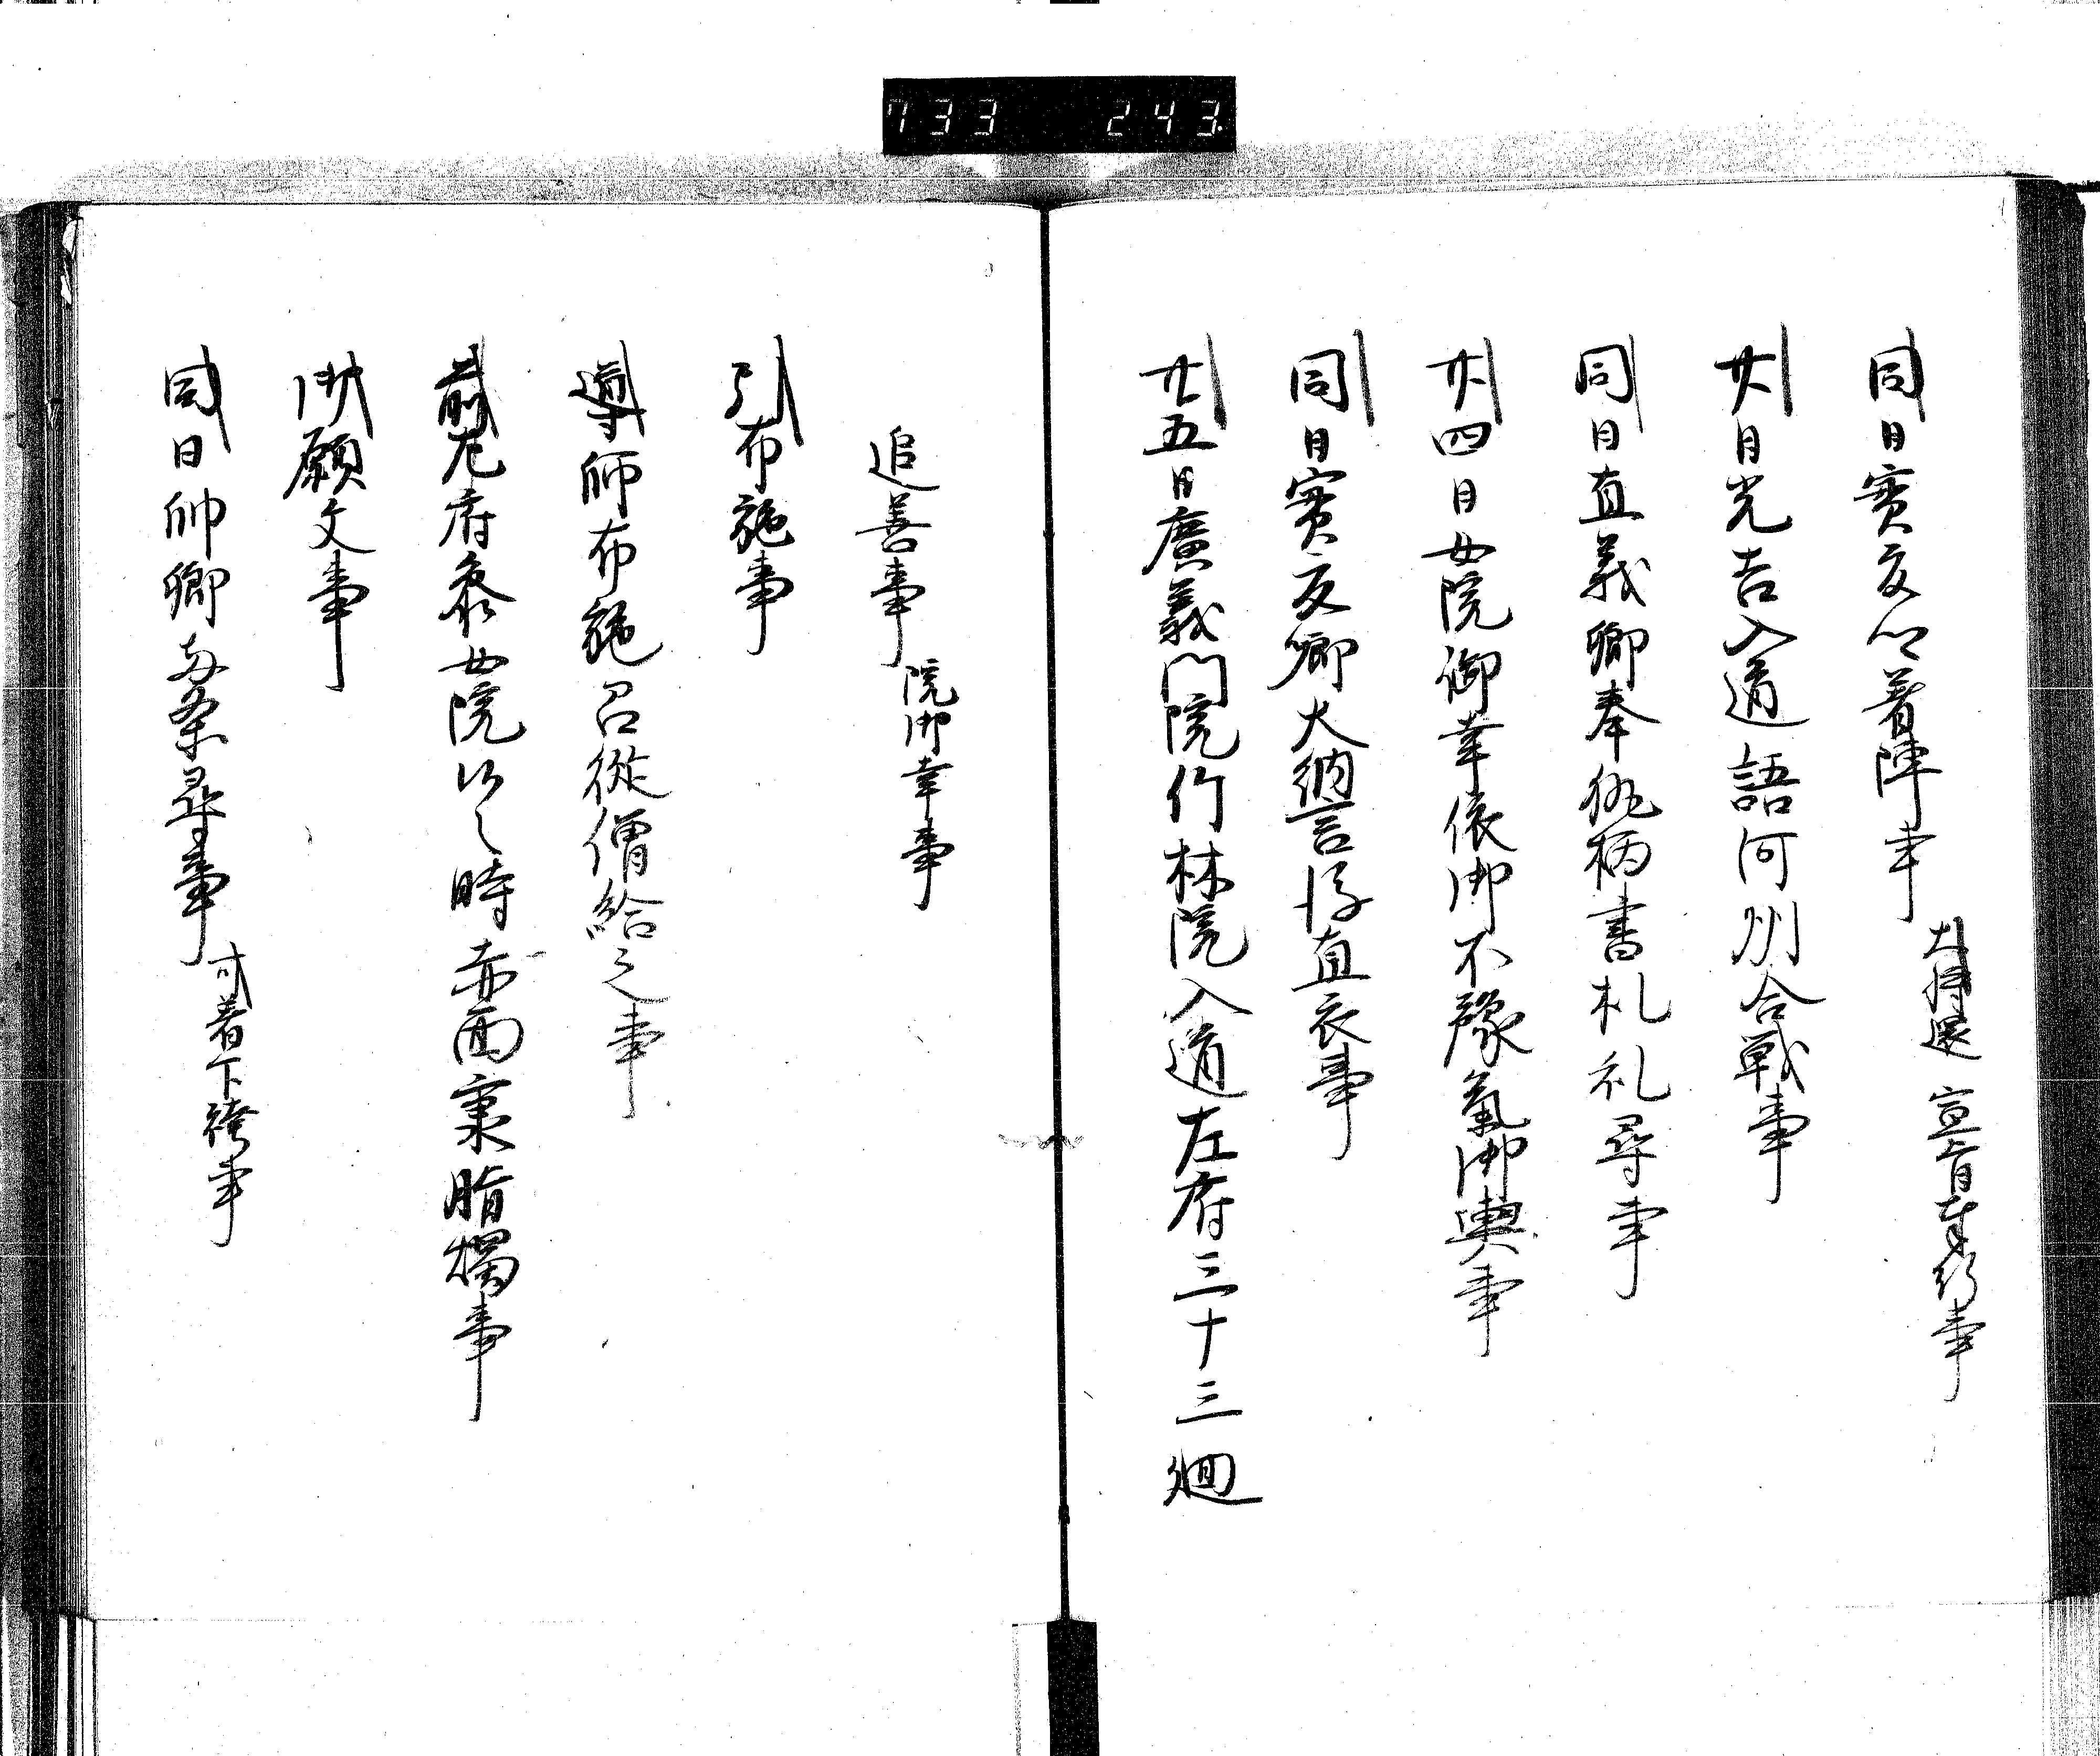 733 243
同日實夏公着陣事
大将還宣旨奉行事
廿日光吉入道語河州合戦事
同日直義卿奉執柄書札礼尋事
廿四日女院御幸依御不豫氣御輿事
同日實夏卿大納言後直衣事
廿五日廣義門院竹林院入道左府三十三廻
追善事
院御幸事
引布施事
導師布施召従僧給之事
前左府参女院以之時赤西秉脂燭事
御願文事
同日帥卿両条尋事
可着下袴事